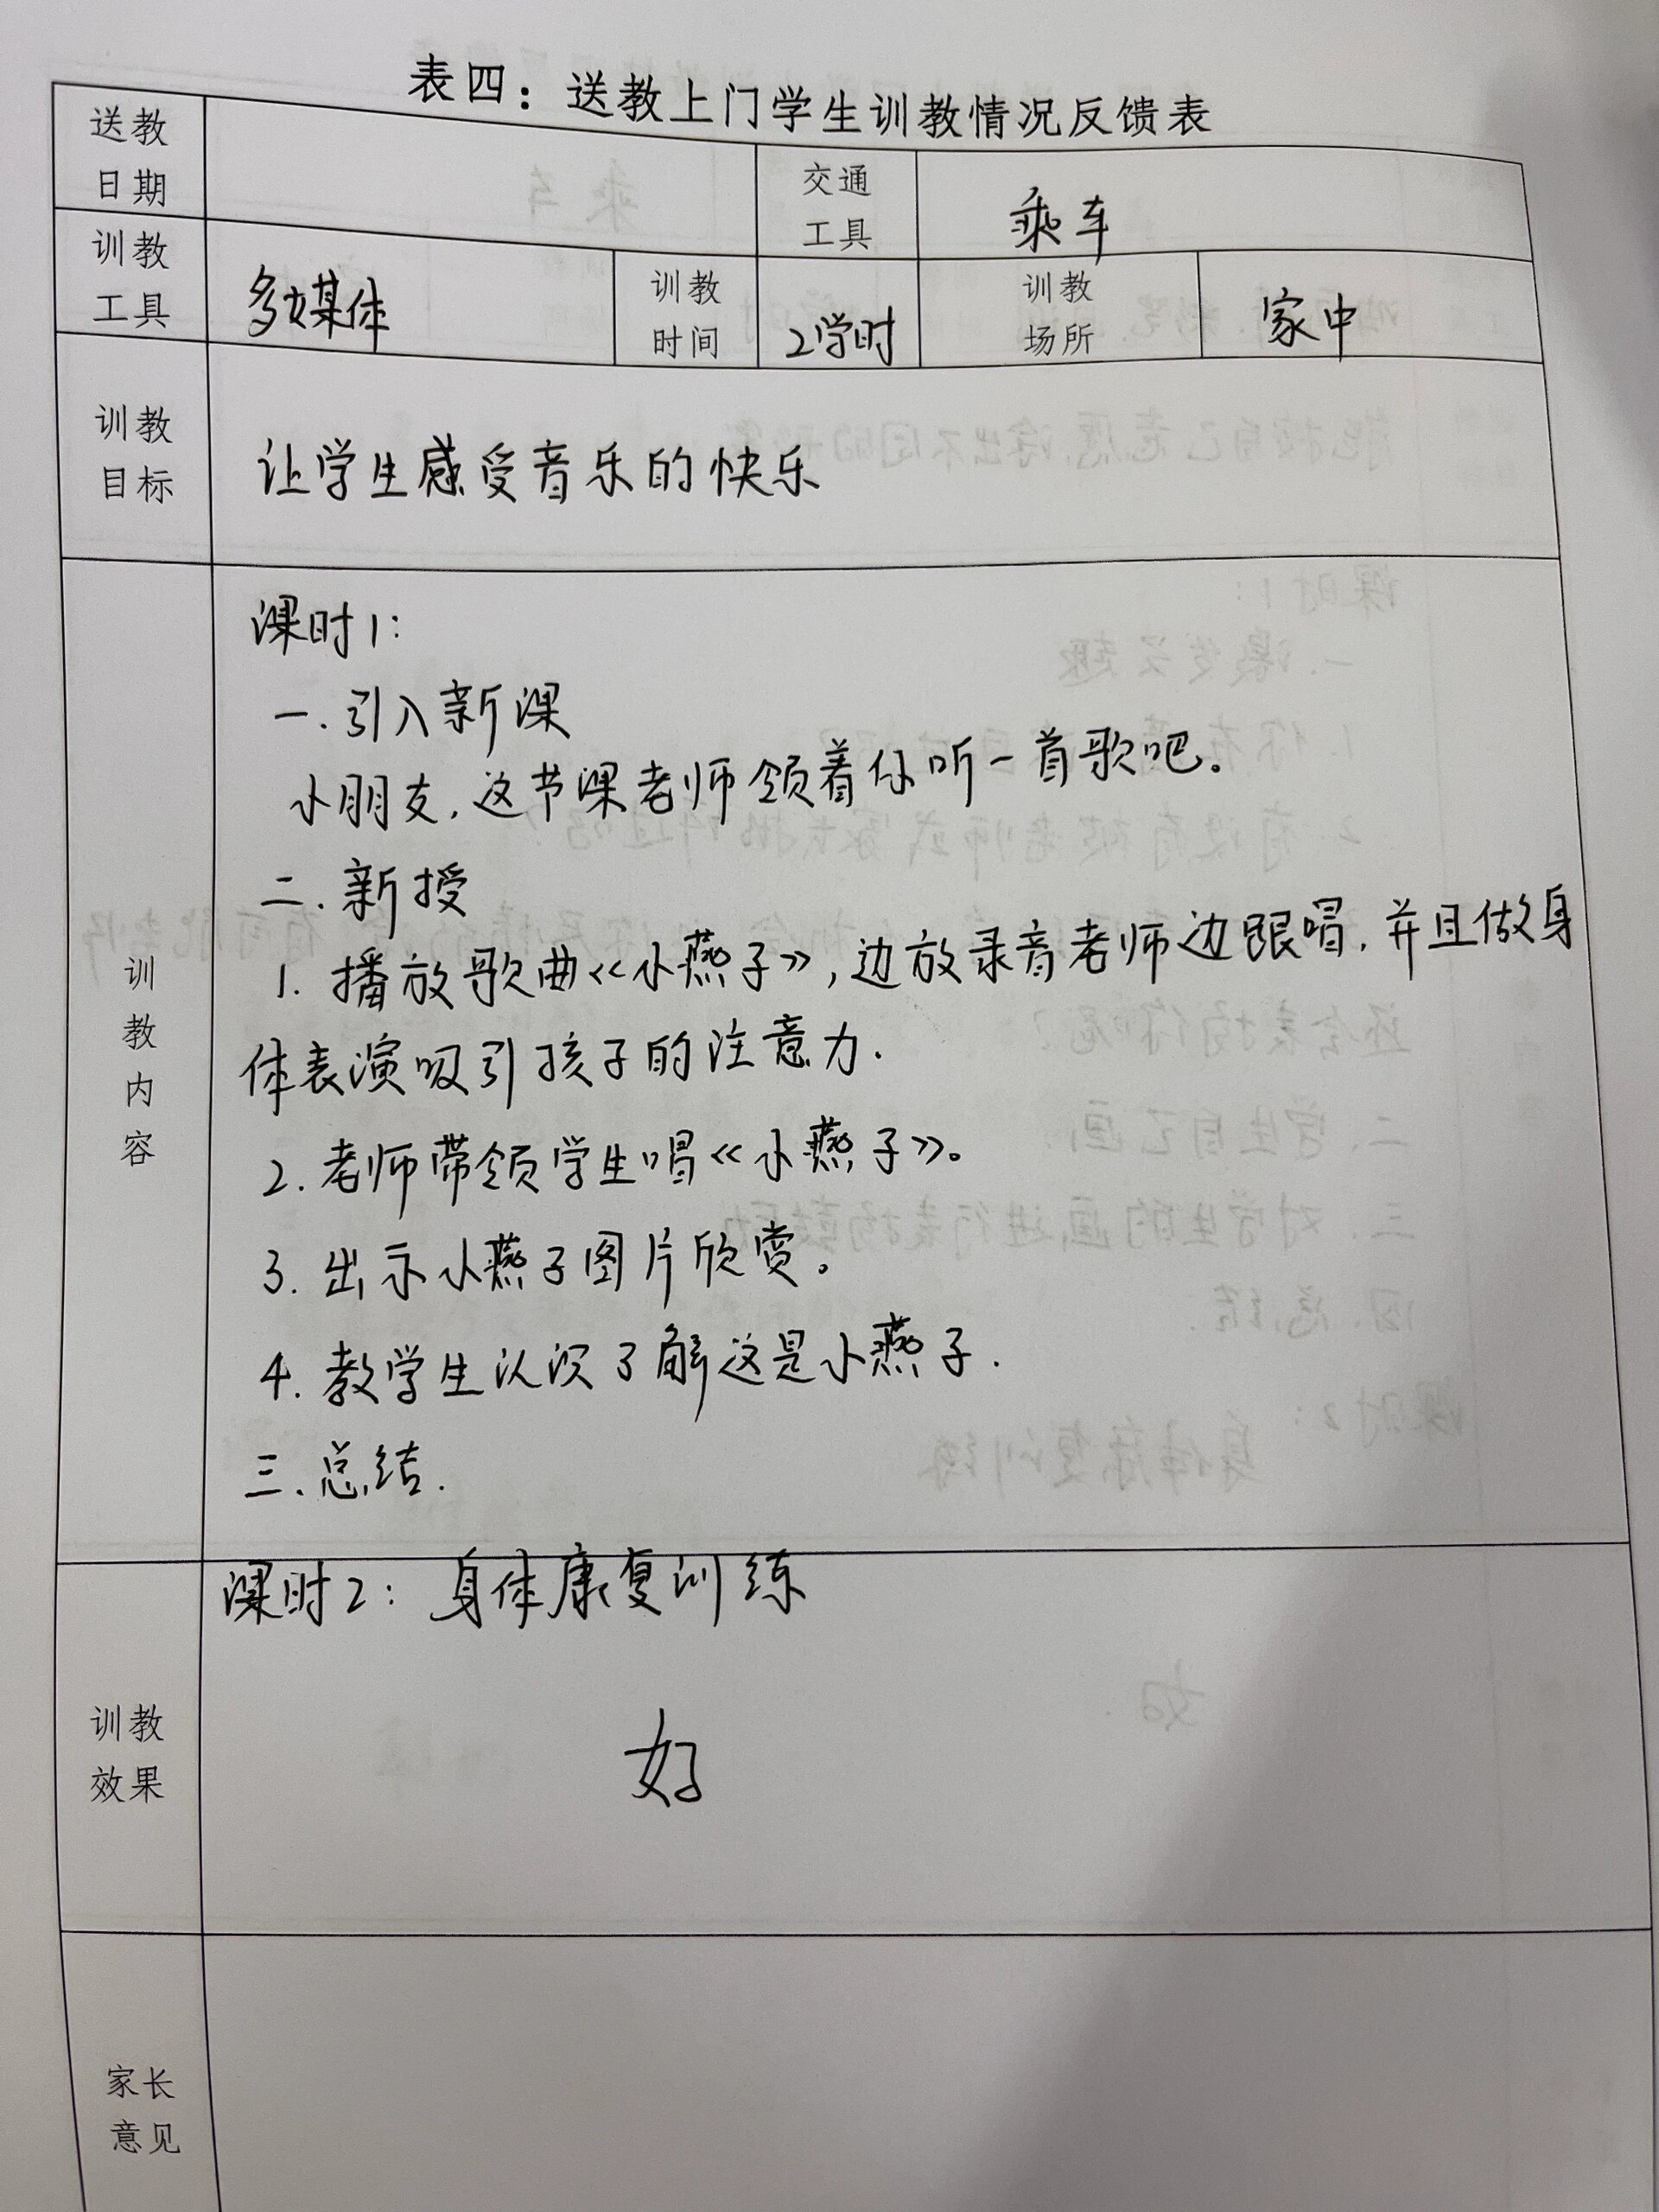 表四：送教上门学生训教情况反馈表
送教日期
交通工具 乘车
训教工具 多媒体 训教时间 2学时 训教场所 家中
训教目标 让学生感受音乐的快乐
训教内容
课时1：
一.引入新课
小朋友,这节课老师领着你听一首歌吧。
二.新授
1.播放歌曲《小燕子》,边放录音老师边跟唡,并且做身
体表演吸引孩子的注意力.
2.老师带领学生唱《小燕子》。
3.出示小燕子图片欣赏。
4.教学生认识了解这是小燕子.
三、总结.
课时2：身体康复训练
训教效果 好
家长意见